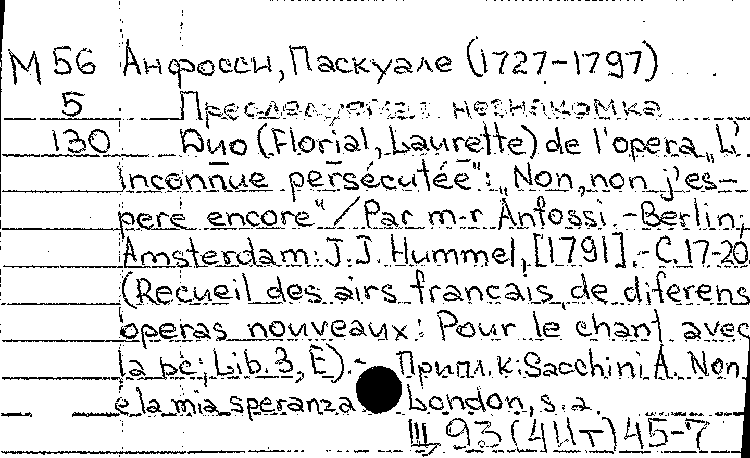 М 56 Анфосси, Паскуале (1727-1797)
5 Преследуемая незнакомка
130 Duo (Florial, Laurette) de l'opera „L'
inconnue persécutée": „Non, non j'es-
pere encore" / Par m-r Anfossi.-Berlin;
Amsterdam: J.J. Hummel, [1791].-C.17-20
(Recueil des airs francais de diferens
operas nouveaux: Pour le chant avec
la bc; Lib. 3, E).- Припл. к: Sacchini A. Non
e la mia speranza London, s.a.
Щ 93 (4Ит) 45-7